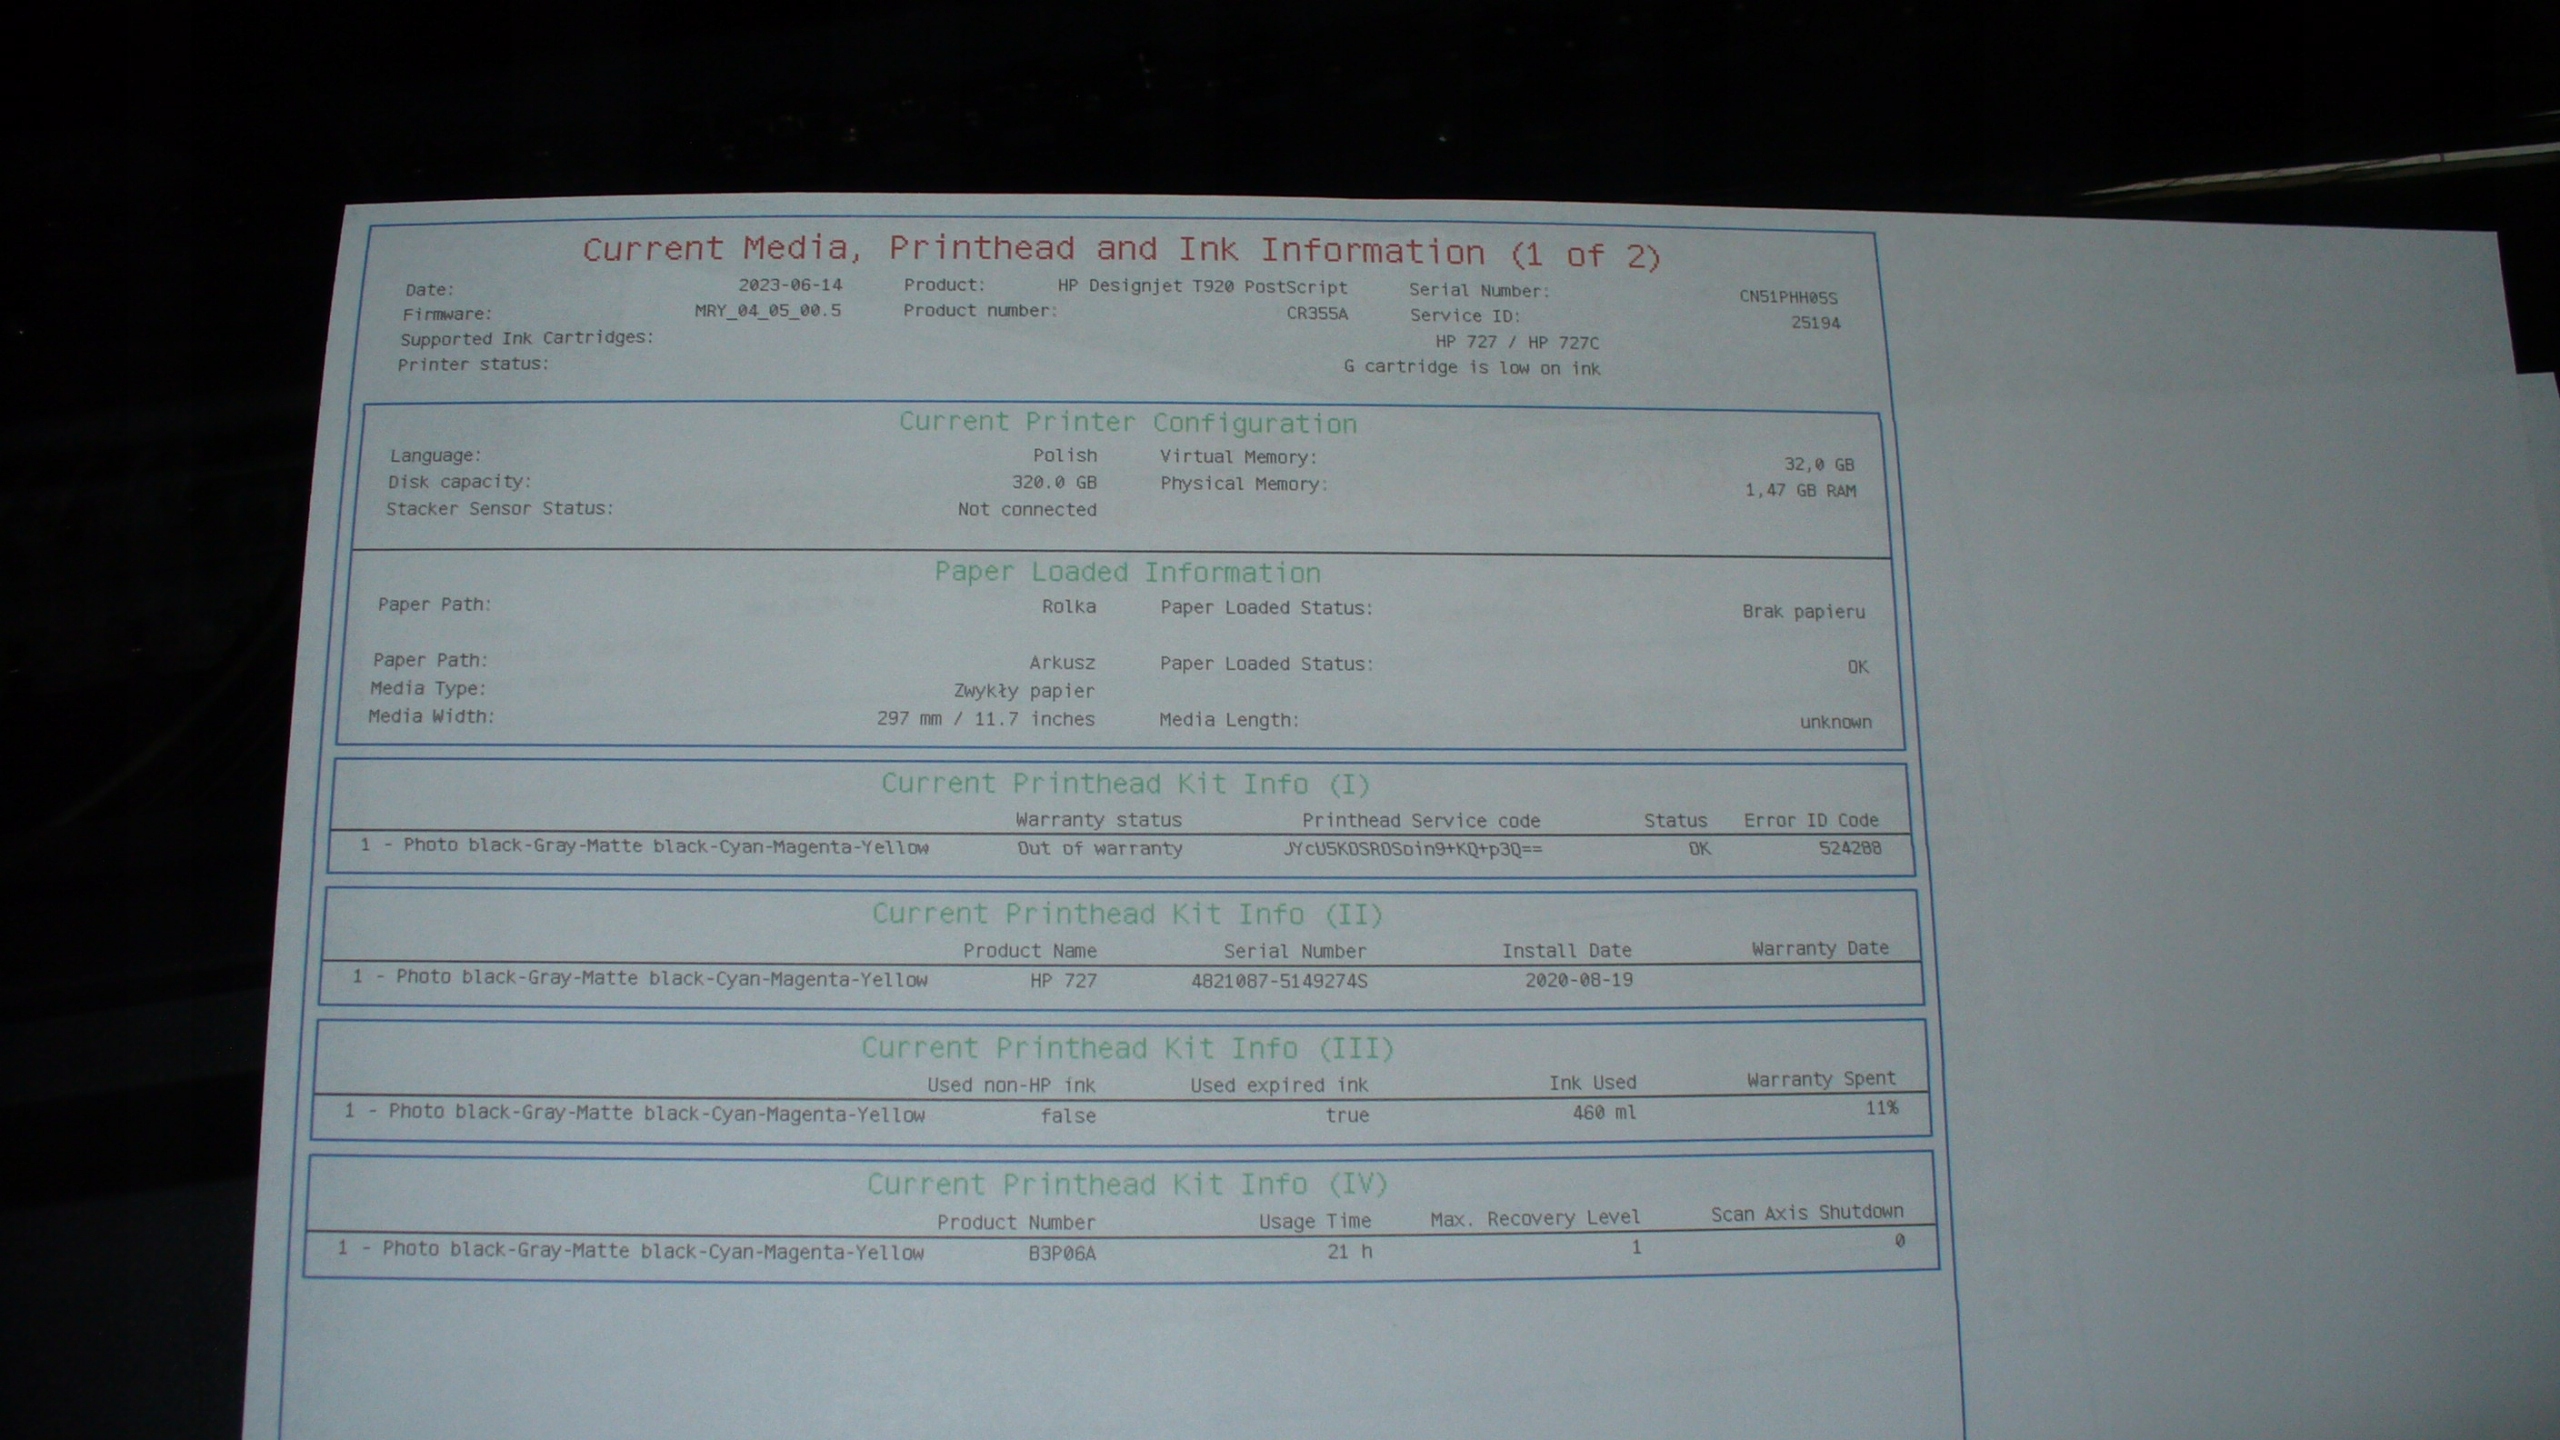 Current Media, Printhead and Ink Information (1 of 2)
Date: 2023-06-14 Product: HP Designjet T920 PostScript Serial Number: CN51PHH05S
Firmware: MRY_04_05_00.5 Product number: CR355A Service ID: 25194
Supported Ink Cartridges: HP 727 / HP 727C
Printer status: G cartridge is low on ink
Current Printer Configuration
Language: Polish Virtual Memory: 32,0 GB
Disk capacity: 320.0 GB Physical Memory: 1,47 GB RAM
Stacker Sensor Status: Not connected
Paper Loaded Information
Paper Path: Rolka Paper Loaded Status: Brak papieru
Paper Path: Arkusz Paper Loaded Status: OK
Media Type: Zwykły papier
Media Width: 297 mm / 11.7 inches Media Length: unknown
Current Printhead Kit Info (I)
Warranty status Printhead Service code Status Error ID Code
1 - Photo black-Gray-Matte black-Cyan-Magenta-Yellow Out of warranty OK 524288
Current Printhead Kit Info (II)
Product Name Serial Number Install Date Warranty Date
1 - Photo black-Gray-Matte black-Cyan-Magenta-Yellow HP 727 4821087-5149274S 2020-08-19
Current Printhead Kit Info (III)
Used non-HP ink Used expired ink Ink Used Warranty Spent
1 - Photo black-Gray-Matte black-Cyan-Magenta-Yellow false true 460 ml 11%
Current Printhead Kit Info (IV)
Product Number Usage Time Max. Recovery Level Scan Axis Shutdown
1 - Photo black-Gray-Matte black-Cyan-Magenta-Yellow B3P06A 21 h 1 0